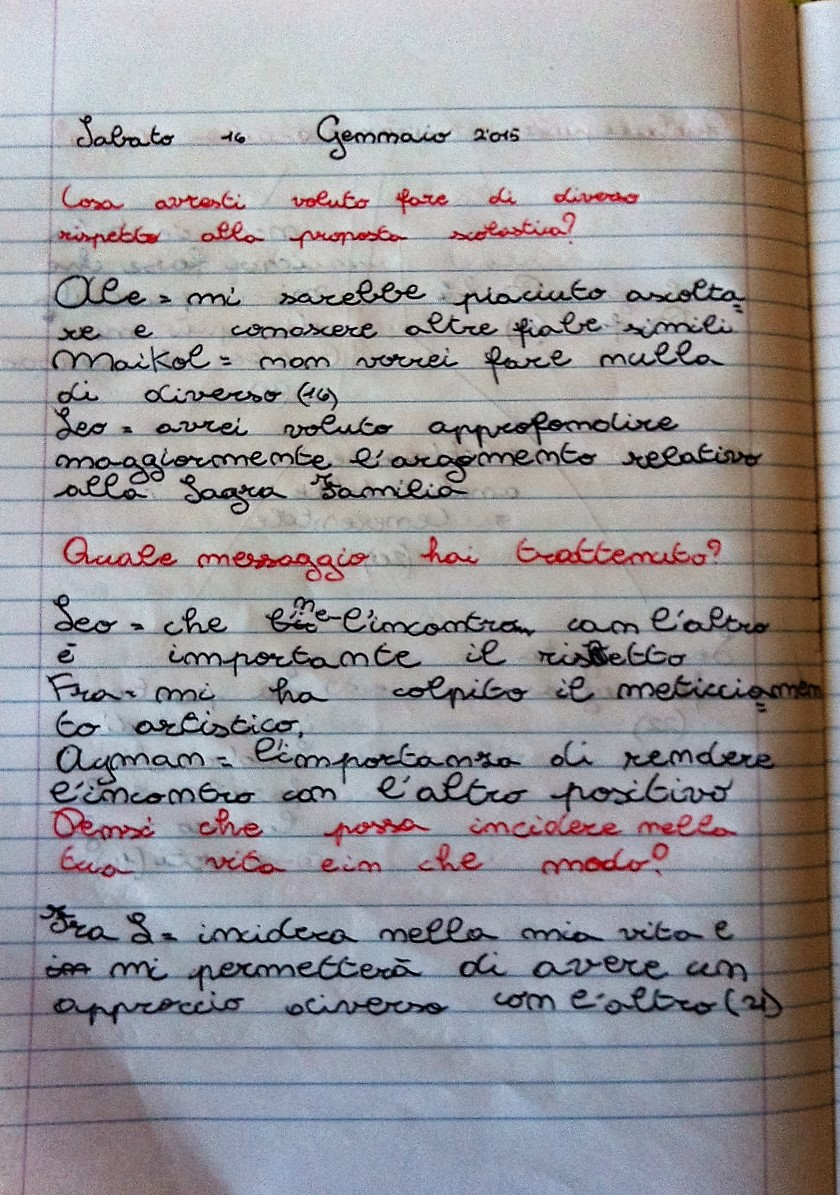 Sabato 16 Gennaio 2015
Cosa avresti voluto fare di diverso
rispetto alla proposta scolastica?
Ale = mi sarebbe piaciuto ascolta=
re e conoscere altre fiabe simili
Maikol = non vorrei fare nulla
di diverso (16)
Leo = avrei voluto approfondire
maggiormente l'argomento relativo
alla Sagra Familia
Quale messaggio hai trattenuto?
Leo = che nel'incontro con l'altro
è importante il rispetto
Fra = mi ha colpito il meticciamen=
to artistico.
Ayman = l'importanza di rendere
l'incontro con l'altro positivo
Pensi che possa incidere nella
tua vita e in che modo?
Fra S = inciderà nella mia vita e
mi permetterà di avere un
approccio diverso con l'altro (21)